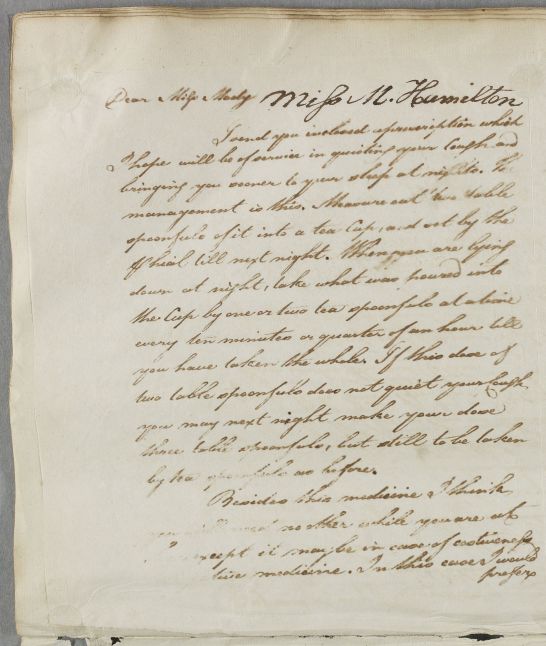 Dear Miss Mady Miss M. Hamilton
I send you inclosed a prescription which
I hope will be of service in quieting your Cough and
bringing you sooner to your sleep at nights. The
management is this. Measure out two table
spoonfuls of it into a tea Cup, and set by the
Phial till next night. When you are lying
down at night, take what was poured into
the Cup by one or two tea spoonfuls at a time
every ten minutes or quarter of an hour till
you have taken the whole. If this dose of
two table spoonfuls does not quiet your Cough
you may next night make your dose
three table spoonfuls, but still to be taken
by tea spoonfuls as before.
Besides this medicine I think
you will need no other while you are at
except it may be in case of costiveness
medicine. In this case I would
prefer